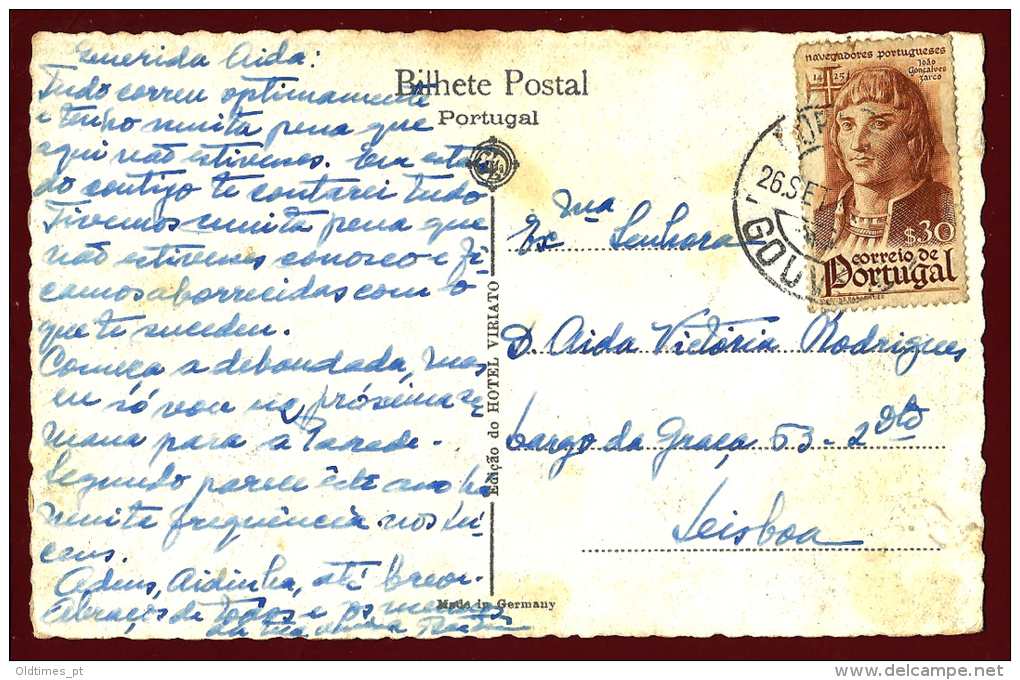 Querida Aida:
Tudo correu optimamente
e tenho muita pena que
aqui não estivesses. Em estan
do contigo te contarei tudo
Tivemos muita pena que
não estivesses conosco e fi-
camos aborrecidas com o
que te sucedeu.
Começa a debandada, mas
eu só vou na próxima se
mana para a Parede.
Segundo parece êste ano há
muita frequência nos Li-
ceus.
Adeus, Aidinha, até breve.
Abraços de todos e os meus
da tua
Bilhete Postal
Portugal
Edição do HOTEL VIRIATO
Made in Germany
Ex ma Senhora
D. Aida Victória Rodrigues
Largo da Graça 53-2 Dto
Lisboa
navegadores portugueses
João
Gonçalves
Zarco
1425
$30
correio de
Portugal
26.SET
GOUV
Oldtimes_pt